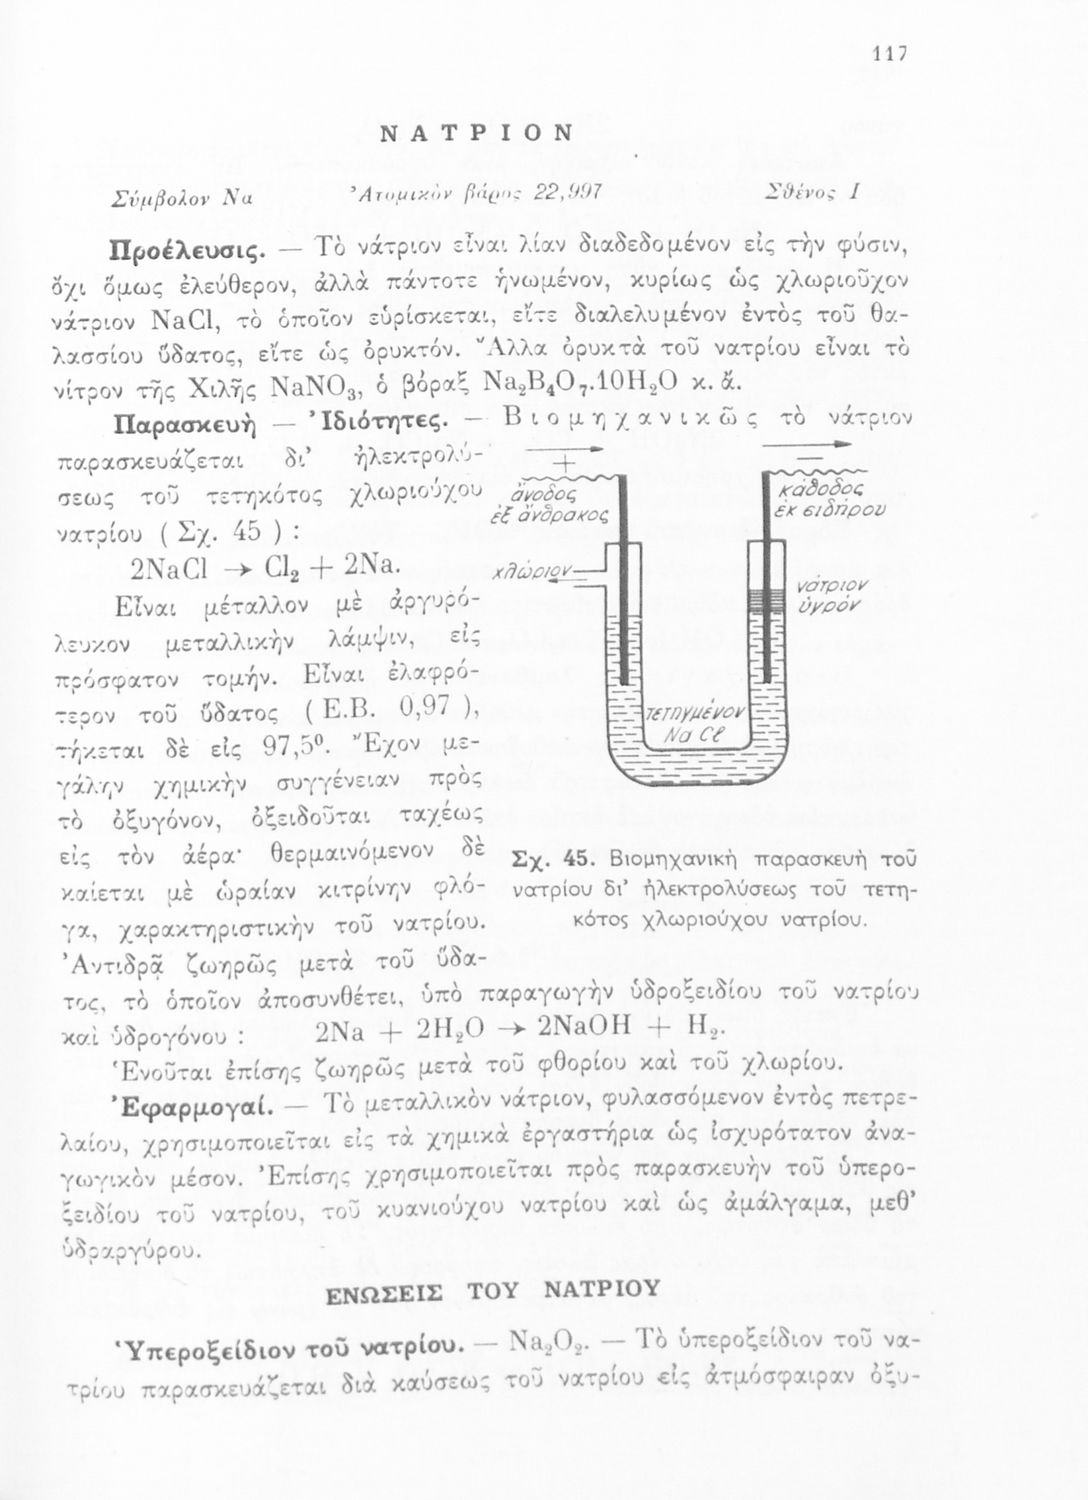 117
ΝΑΤΡΙΟΝ
Σύμβολον Να Ἀτομικὸν βάρος 22,997 Σθένος Ι
Προέλευσις. — Τὸ νάτριον εἶναι λίαν διαδεδομένον εἰς τὴν φύσιν,
ὄχι ὅμως ἐλεύθερον, ἀλλὰ πάντοτε ἡνωμένον, κυρίως ὡς χλωριοῦχον
νάτριον NaCl, τὸ ὁποῖον εὑρίσκεται, εἴτε διαλελυμένον ἐντὸς τοῦ θα-
λασσίου ὕδατος, εἴτε ὡς ὀρυκτόν. Ἄλλα ὀρυκτὰ τοῦ νατρίου εἶναι τὸ
νίτρον τῆς Χιλῆς NaNO₃, ὁ βόραξ Na₂B₄O₇.10H₂O κ. ἄ.
Παρασκευὴ — Ἰδιότητες. — Βιομηχανικῶς τὸ νάτριον
παρασκευάζεται δι’ ἠλεκτρολύ-
σεως τοῦ τετηκότος χλωριούχου
νατρίου ( Σχ. 45 ) :
2NaCl → Cl₂ + 2Na.
Εἶναι μέταλλον μὲ ἀργυρό-
λευκον μεταλλικὴν λάμψιν, εἰς
πρόσφατον τομήν. Εἶναι ἐλαφρό-
τερον τοῦ ὕδατος ( Ε.Β. 0,97 ),
τήκεται δὲ εἰς 97,5⁰. Ἔχον με-
γάλην χημικὴν συγγένειαν πρὸς
τὸ ὀξυγόνον, ὀξειδοῦται ταχέως
εἰς τὸν ἀέρα· θερμαινόμενον δὲ
καίεται μὲ ὡραίαν κιτρίνην φλό-
γα, χαρακτηριστικὴν τοῦ νατρίου.
Ἀντιδρᾷ ζωηρῶς μετὰ τοῦ ὕδα-
+
—
ἄνοδος
ἐξ ἄνθρακος
κάθοδος
ἐκ σιδήρου
χλώριον
νάτριον
ὑγρόν
τετηγμένον
Na Cl
Σχ. 45. Βιομηχανικὴ παρασκευὴ τοῦ
νατρίου δι’ ἠλεκτρολύσεως τοῦ τετη-
κότος χλωριούχου νατρίου.
τος, τὸ ὁποῖον ἀποσυνθέτει, ὑπὸ παραγωγὴν ὑδροξειδίου τοῦ νατρίου
καὶ ὑδρογόνου : 2Na + 2H₂O → 2NaOH + H₂.
Ἑνοῦται ἐπίσης ζωηρῶς μετὰ τοῦ φθορίου καὶ τοῦ χλωρίου.
Ἐφαρμογαί. — Τὸ μεταλλικὸν νάτριον, φυλασσόμενον ἐντὸς πετρε-
λαίου, χρησιμοποιεῖται εἰς τὰ χημικὰ ἐργαστήρια ὡς ἰσχυρότατον ἀνα-
γωγικὸν μέσον. Ἐπίσης χρησιμοποιεῖται πρὸς παρασκευὴν τοῦ ὑπερο-
ξειδίου τοῦ νατρίου, τοῦ κυανιούχου νατρίου καὶ ὡς ἀμάλγαμα, μεθ’
ὑδραργύρου.
ΕΝΩΣΕΙΣ ΤΟΥ ΝΑΤΡΙΟΥ
Ὑπεροξείδιον τοῦ νατρίου. — Na₂O₂. — Τὸ ὑπεροξείδιον τοῦ να-
τρίου παρασκευάζεται διὰ καύσεως τοῦ νατρίου εἰς ἀτμόσφαιραν ὀξυ-